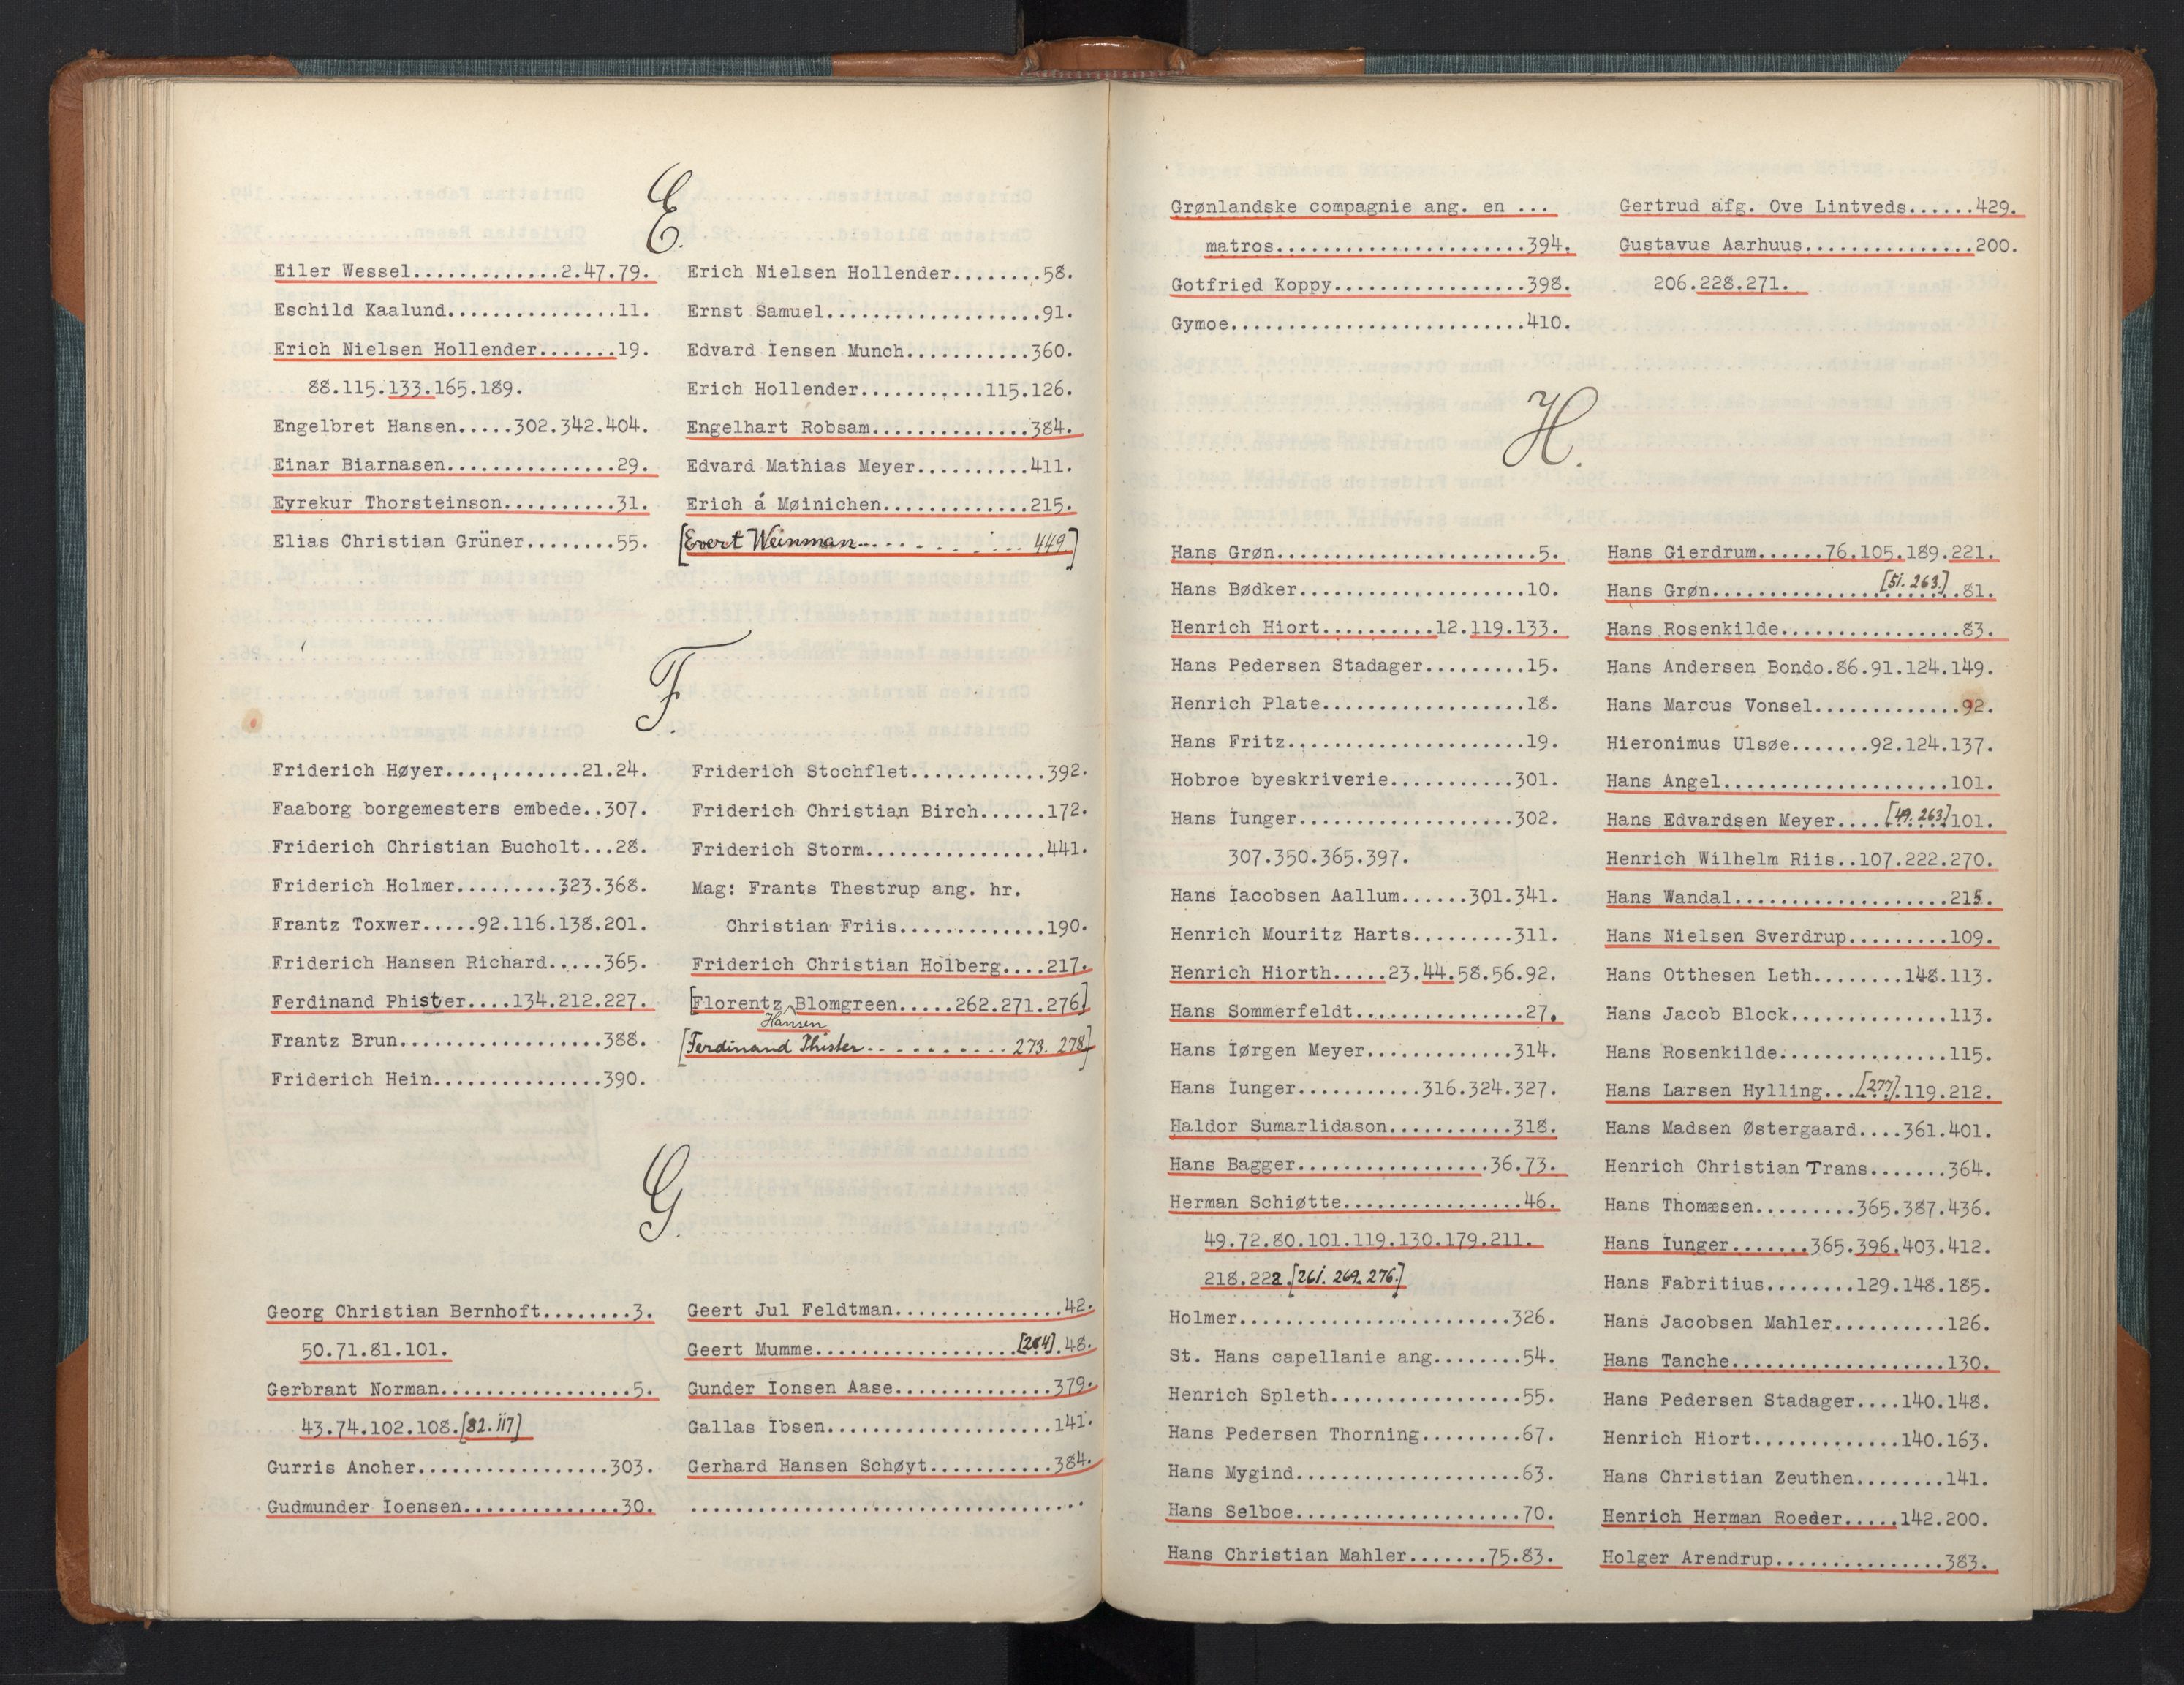 E.
Eiler Wessel.............2.47.79.
Eschild Kaalund...............11.
Erich Nielsen Hollender.......19.
88.115.133.165.189.
Engelbret Hansen.....302.342.404.
Einar Biarnasen...............29.
Eyrekur Thorsteinson..........31.
Elias Christian Grüner........55.
Erich Nielsen Hollender........58.
Ernst Samuel...................91.
Edvard Iensen Munch...........360.
Erich Hollender...........115.126.
Engelhart Robsam..............384.
Edvard Mathias Meyer..........411.
Erich á Møinichen.............215.
[Evert Weinman............449]
F.
Friderich Høyer............21.24.
Faaborg borgemesters embede..307.
Friderich Christian Bucholt...28.
Friderich Holmer.........323.368.
Frantz Toxwer.....92.116.138.201.
Friderich Hansen Richard.....365.
Ferdinand Phister....134.212.227.
Frantz Brun..................388.
Friderich Hein...............390.
Friderich Stochflet............392.
Friderich Christian Birch......172.
Friderich Storm................441.
Mag: Frants Thestrup ang. hr.
Christian Friis.............190.
Friderich Christian Holberg....217.
[Florentz Blomgreen.....262.271.276]
Hansen
[Ferdinand Phister...........273. 278]
G.
Georg Christian Bernhoft........3.
50.71.81.101.
Gerbrant Norman.................5.
43.74.102.108.[82.117]
Gurris Ancher.................303.
Gudmunder Ioensen..............30.
Geert Jul Feldtman...............42.
Geert Mumme..................[264].48.
Gunder Ionsen Aase..............379.
Gallas Ibsen....................141.
Gerhard Hansen Schøyt...........384.
....................................
Grønlandske compagnie ang. en ...
matros......................394.
Gotfried Koppy.................398.
Gymoe..........................410.
Gertrud afg. Ove Lintveds......429.
Gustavus Aarhuus...............200.
206.228.271.
H.
Hans Grøn.......................5.
Hans Bødker....................10.
Henrich Hiort..........12.119.133.
Hans Pedersen Stadager.........15.
Henrich Plate..................18.
Hans Fritz.....................19.
Hobroe byeskriverie...........301.
Hans Iunger...................302.
307.350.365.397.
Hans Iacobsen Aallum......301.341.
Henrich Mouritz Harts.........311.
Henrich Hiorth.....23.44.58.56.92.
Hans Sommerfeldt...............27.
Hans Iørgen Meyer.............314.
Hans Iunger...........316.324.327.
Haldor Sumarlidason...........318.
Hans Bagger.................36.73.
Herman Schiøtte................46.
49.72.80.101.119.130.179.211.
218.222.[261. 269. 276.]
Holmer........................326.
St. Hans capellanie ang........54.
Henrich Spleth.................55.
Hans Pedersen Thorning.........67.
Hans Mygind....................63.
Hans Selboe....................70.
Hans Christian Mahler.......75.83.
Hans Gierdrum......76.105.189.221.
Hans Grøn...............[51. 263.].81.
Hans Rosenkilde................83.
Hans Andersen Bondo.86.91.124.149.
Hans Marcus Vonsel.............92.
Hieronimus Ulsøe.......92.124.137.
Hans Angel....................101.
Hans Edvardsen Meyer....[49. 263]101.
Henrich Wilhelm Riis..107.222.270.
Hans Wandal...................215.
Hans Nielsen Sverdrup.........109.
Hans Otthesen Leth........148.113.
Hans Jacob Block..............113.
Hans Rosenkilde...............115.
Hans Larsen Hylling...[277].119.212.
Hans Madsen Østergaard....361.401.
Henrich Christian Trans.......364.
Hans Thomæsen.........365.387.436.
Hans Iunger.......365.396.403.412.
Hans Fabritius........129.148.185.
Hans Jacobsen Mahler..........126.
Hans Tanche...................130.
Hans Pedersen Stadager....140.148.
Henrich Hiort.............140.163.
Hans Christian Zeuthen........141.
Henrich Herman Roeder.....142.200.
Holger Arendrup...............383.